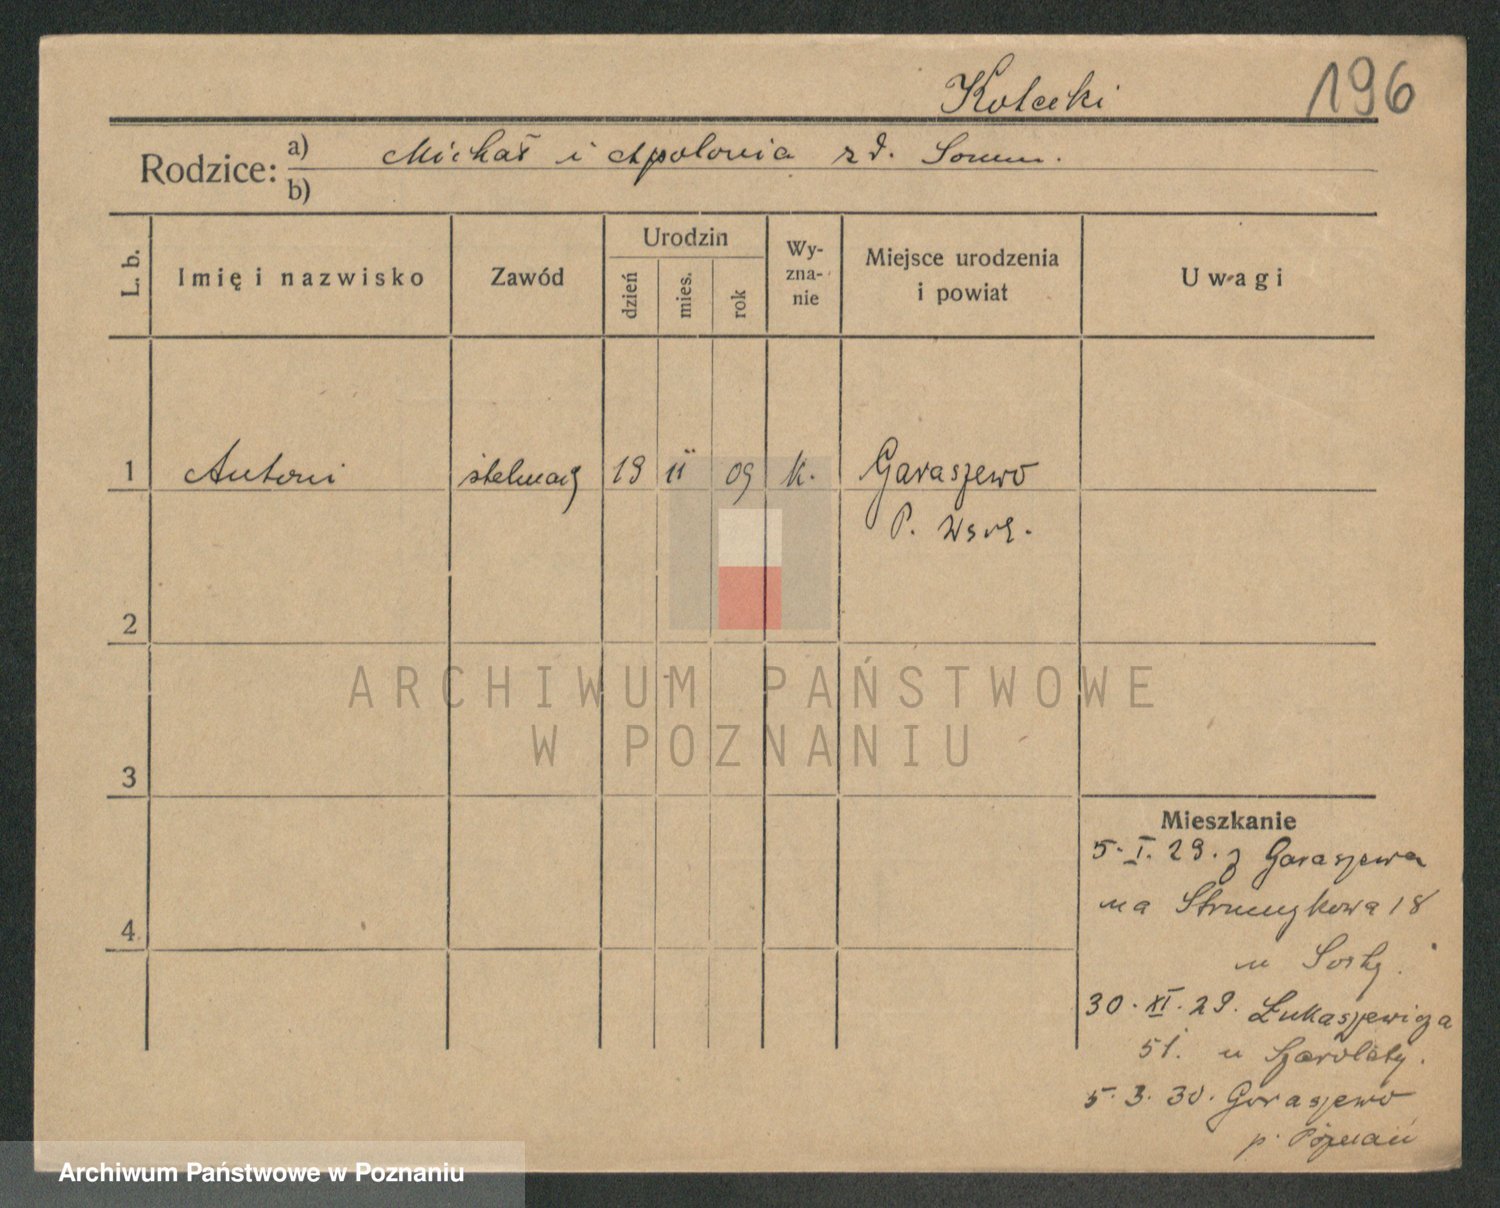 Kotecki
196
Rodzice:
a) Michał i Apolonia zd.
b)
L. b.
Imię i nazwisko
Zawód
Urodzin
dzień
mies.
rok
Wy-
zna-
nie
Miejsce urodzenia
i powiat
Uwagi
1 Antoni stelmach 19 II 09 k. Garaszewo
P. Wsch.
2
3
4
ARCHIWUM PAŃSTWOWE
W POZNANIU
Mieszkanie
5. I. 29. z Garaszewa
na Strumykowa 18
u
30. XI. 29. Łukaszewicza
51. u
5. 3. 30. Garaszewo
p. Poznań
Archiwum Państwowe w Poznaniu